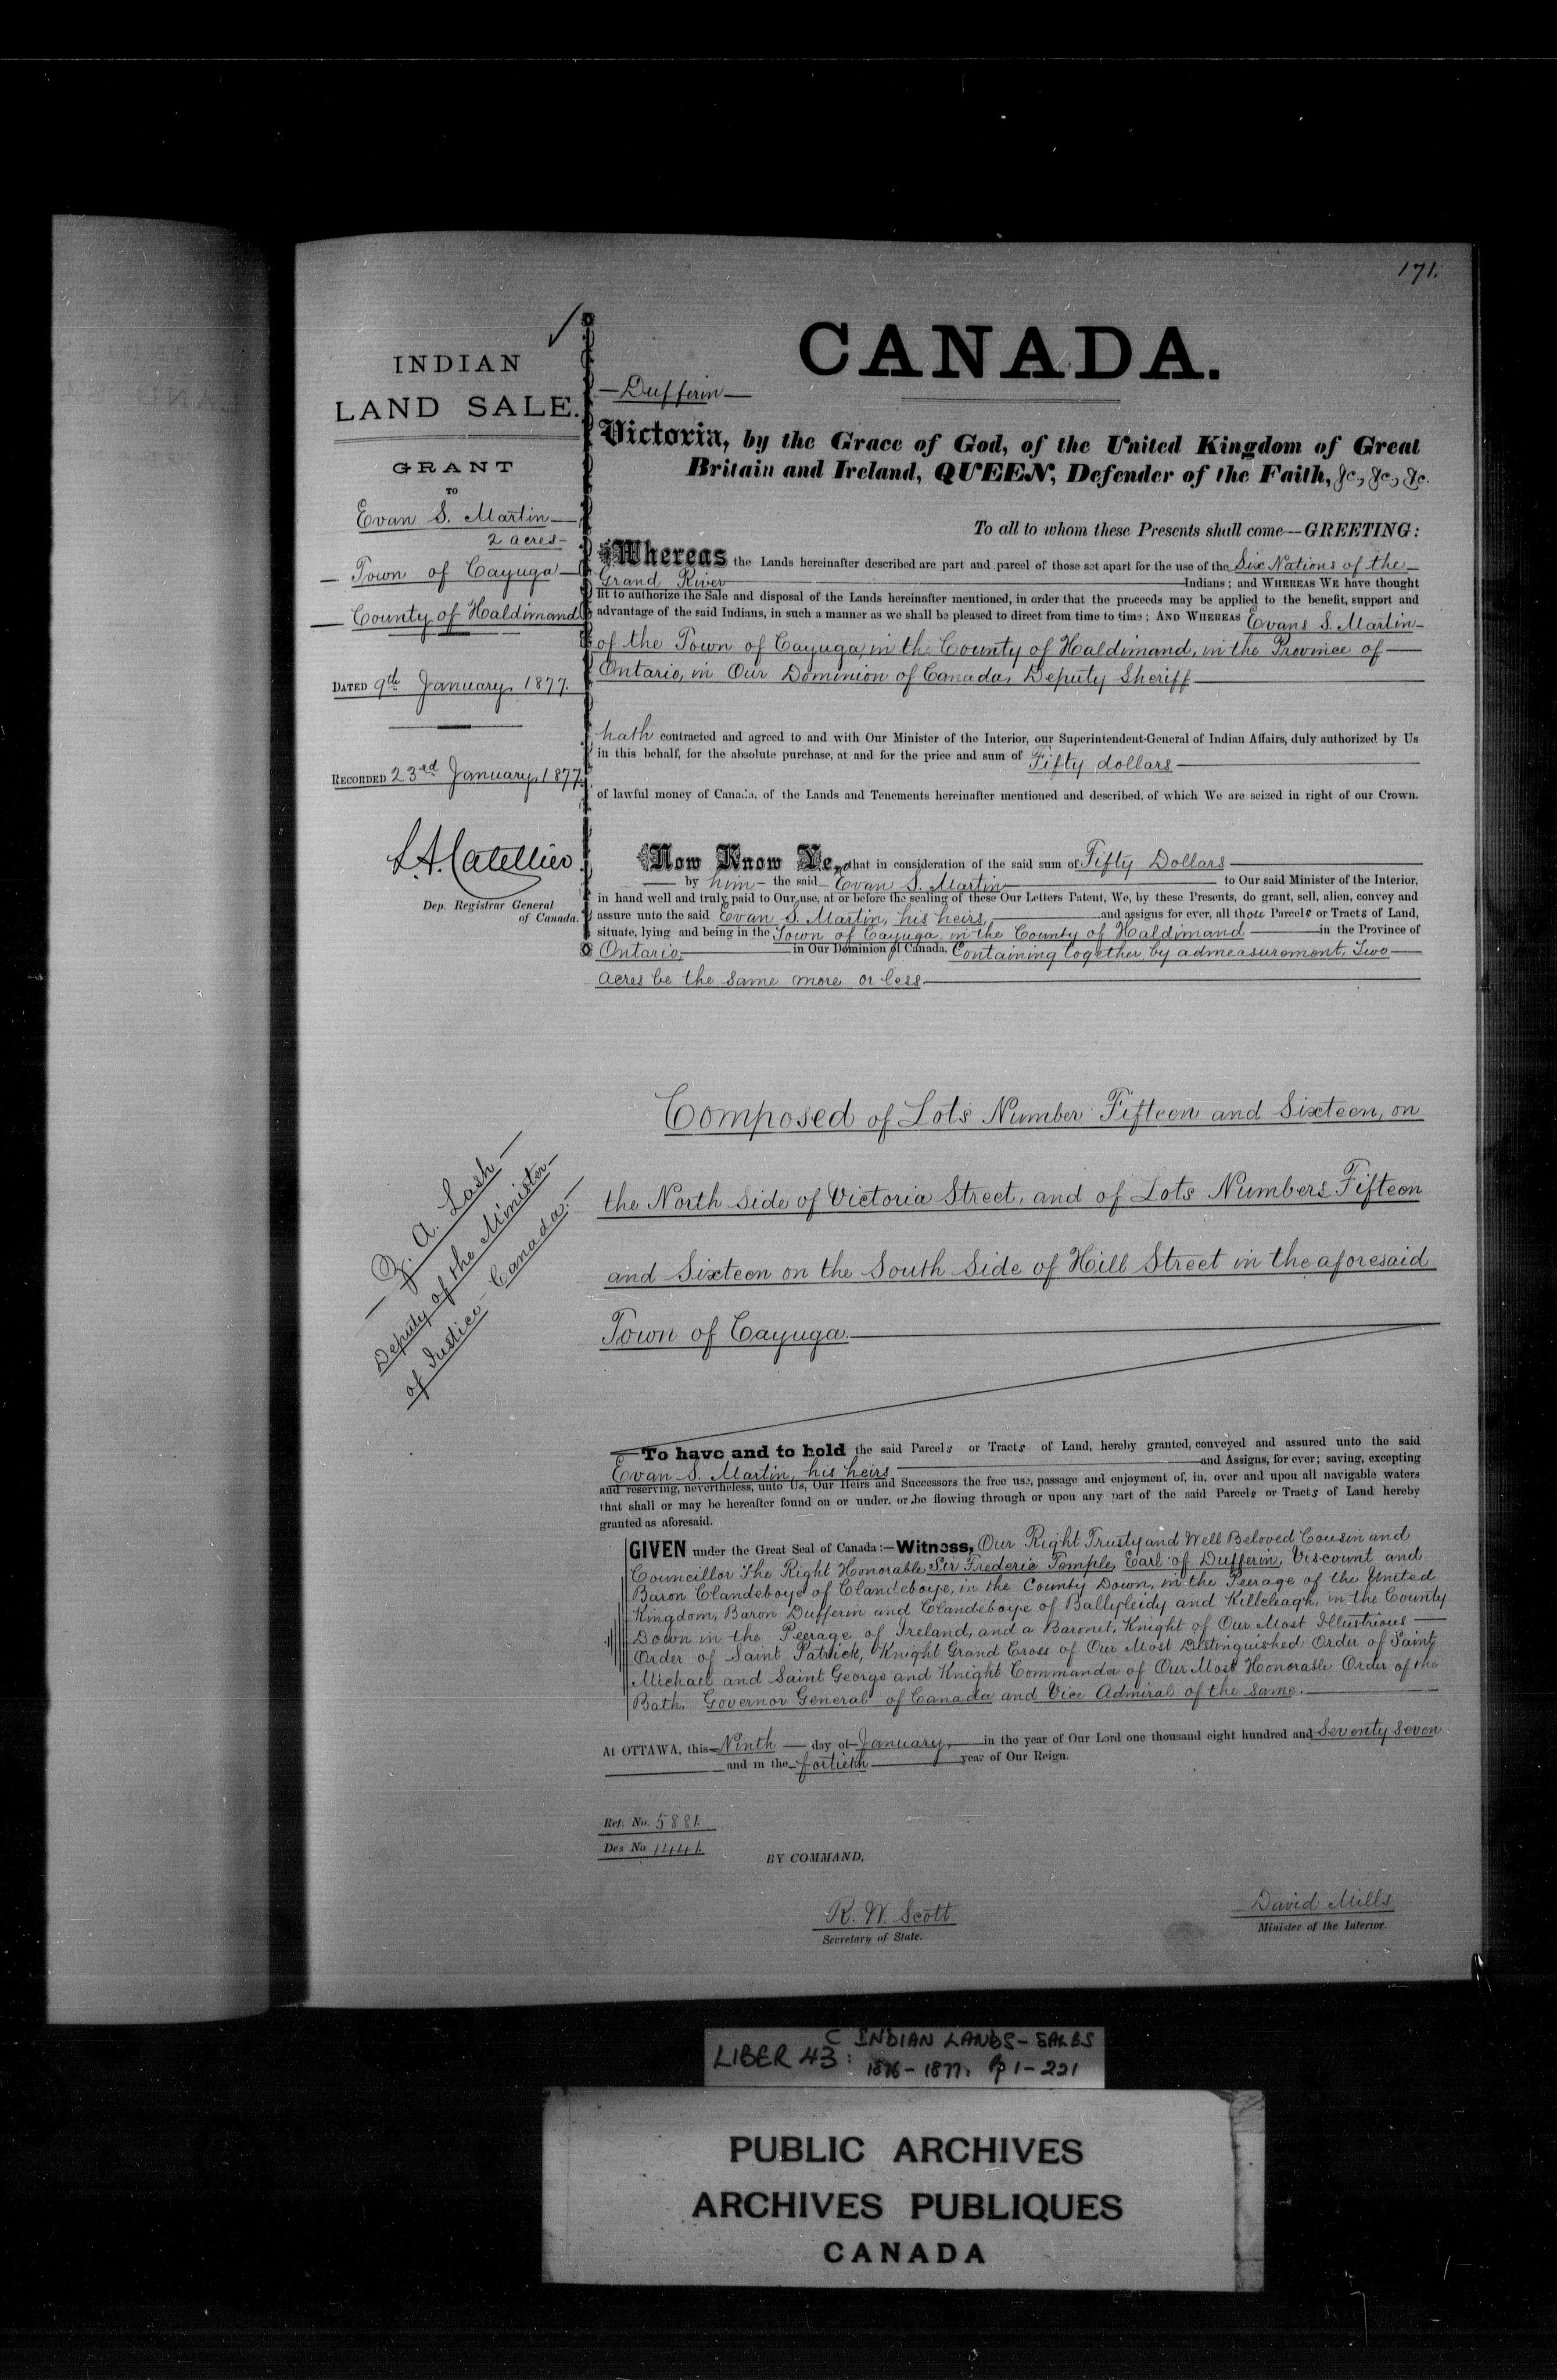 171.
INDIAN
LAND SALE.
GRANT
TO
Evan S. Martin
2 acres
Town of Cayuga
County of Haldimand
DATED 9th January, 1877.
RECORDED 23rd January, 1877.
L.A. Catellier
Dep. Registrar General
of Canada.
Z. A. Lash
Deputy of the Minister
of Justice - Canada.
CANADA.
Dufferin
Victoria, by the Grace of God, of the United Kingdom of Great
Britain and Ireland, QUEEN, Defender of the Faith, &c., &c., &c.
To all to whom these Presents shall come—GREETING:
Whereas the Lands hereinafter described are part and parcel of those set apart for the use of the Six Nations of the
Grand River Indians; and WHEREAS WE have thought
fit to authorize the Sale and disposal of the Lands hereinafter mentioned, in order that the proceeds may be applied to the benefit, support and
advantage of the said Indians, in such a manner as we shall be pleased to direct from time to time; AND WHEREAS Evans S. Martin
of the Town of Cayuga in the County of Haldimand, in the Province of
Ontario, in Our Dominion of Canada, Deputy Sheriff
hath contracted and agreed to and with Our Minister of the Interior, our Superintendent-General of Indian Affairs, duly authorized by Us
in this behalf, for the absolute purchase, at and for the price and sum of Fifty dollars
of lawful money of Canada, of the Lands and Tenements hereinafter mentioned and described, of which We are seized in right of our Crown.
Now Know Ye, that in consideration of the said sum of Fifty Dollars
by him the said Evan S. Martin to Our said Minister of the Interior,
in hand well and truly paid to Our use, at or before the sealing of these Our Letters Patent, We, by these Presents, do grant, sell, alien, convey and
assure unto the said Evan S. Martin, his heirs, and assigns for ever, all those Parcels or Tracts of Land,
situate, lying and being in the Town of Cayuga in the County of Haldimand in the Province of
Ontario, in Our Dominion of Canada, Containing together by admeasurement, Two
acres be the same more or less.
Composed of Lots Number Fifteen and Sixteen, on
the North Side of Victoria Street, and of Lots Numbers Fifteen
and Sixteen on the South Side of Hill Street in the aforesaid
Town of Cayuga.
To have and to hold the said Parcels or Tracts of Land, hereby granted, conveyed and assured unto the said
Evan S. Martin, his heirs and Assigns, for ever; saving, excepting
and reserving, nevertheless, unto Us, Our Heirs and Successors the free use, passage and enjoyment of, in, over and upon all navigable waters
that shall or may be hereafter found on or under, or be flowing through or upon any part of the said Parcels or Tracts of Land hereby
granted as aforesaid.
GIVEN under the Great Seal of Canada:—Witness, Our Right Trusty and Well Beloved Cousin and
Councillor The Right Honorable Sir Frederic Temple, Earl of Dufferin, Viscount and
Baron Clandeboye of Clandeboye, in the County Down, in the Peerage of the United
Kingdom, Baron Dufferin and Clandeboye of Ballyleidy and Killeleagh, in the County
Down in the Peerage of Ireland, and a Baronet, Knight of Our Most Illustrious
Order of Saint Patrick, Knight Grand Cross of Our Most Distinguished Order of Saint
Michael and Saint George and Knight Commander of Our Most Honorable Order of the
Bath. Governor General of Canada and Vice Admiral of the same.
At OTTAWA, this Ninth day of January, in the year of Our Lord one thousand eight hundred and Seventy Seven
and in the fortieth year of Our Reign.
Ref. No. 5881.
Des No 1441.
BY COMMAND,
R. W. Scott
Secretary of State.
David Mills
Minister of the Interior.
LIBER 43: C INDIAN LANDS - SALES
1876 - 1877. pp 1 - 221
PUBLIC ARCHIVES
ARCHIVES PUBLIQUES
CANADA